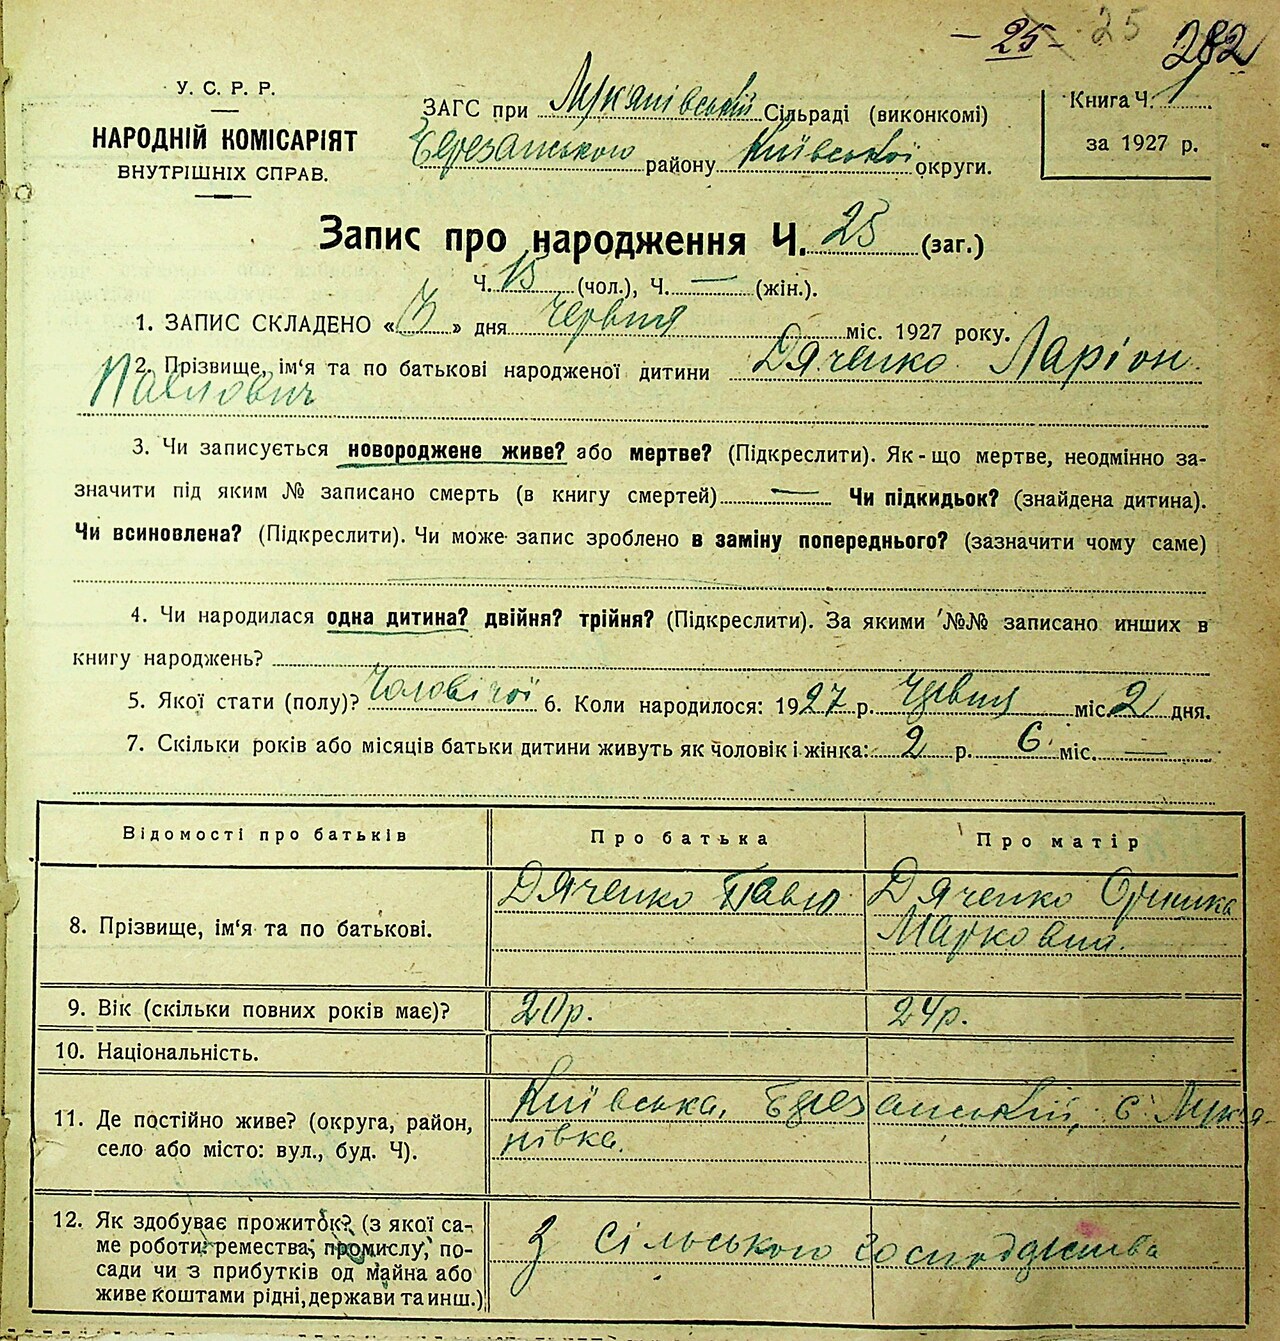 - 25 - 25 282
У. С. Р. Р.
НАРОДНІЙ КОМІСАРІЯТ
ВНУТРІШНІХ СПРАВ.
ЗАГС при Лукянівській Сільраді (виконкомі)
Березанського району Київської округи.
Книга Ч. 1
за 1927 р.
Запис про народження Ч. 25 (заг.)
Ч. 15 (чол.), Ч. — (жін.).
1. ЗАПИС СКЛАДЕНО «3» дня червня міс. 1927 року.
2. Прізвище, ім'я та по батькові народженої дитини Дяченко Ларіон
Павлович
3. Чи записується новороджене живе? або мертве? (Підкреслити). Як-що мертве, неодмінно за-
значити під яким № записано смерть (в книгу смертей) — Чи підкидьок? (знайдена дитина).
Чи всиновлена? (Підкреслити). Чи може запис зроблено в заміну попереднього? (зазначити чому саме)
4. Чи народилася одна дитина? двійня? трійня? (Підкреслити). За якими №№ записано инших в
книгу народжень?
5. Якої стати (полу)? Чоловічої 6. Коли народилося: 1927 р. червня міс. 2 дня.
7. Скільки років або місяців батьки дитини живуть як чоловік і жінка: 2 р. 6 міс. —
Відомості про батьків Про батька Про матір
8. Прізвище, ім'я та по батькові. Дяченко Павло Дяченко Оришка
Марковна.
9. Вік (скільки повних років має)? 20р. 24р.
10. Національність.
11. Де постійно живе? (округа, район,
село або місто: вул., буд. Ч).
Київська, Березанський, с. Лукя-
нівка.
12. Як здобуває прожиток? (з якої са-
ме роботи: ремества, промислу, по-
сади чи з прибутків од майна або
живе коштами рідні, держави та инш.)
З сільського господарства